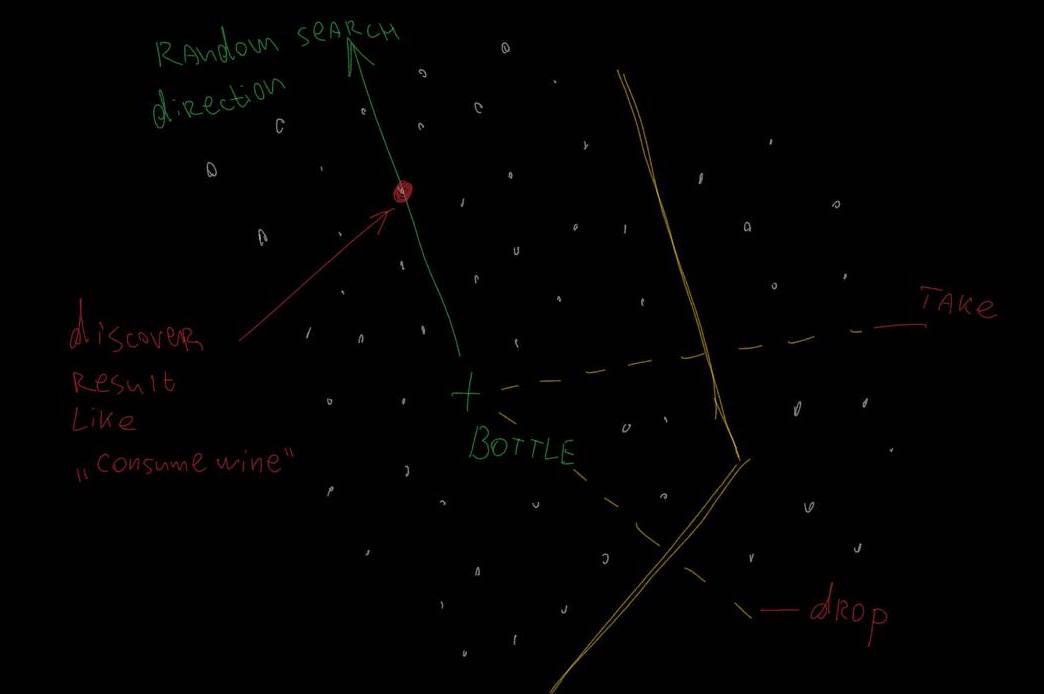 Random search
direction
TAKE
discover
Result
Like
„consume wine"
BOTTLE
drop